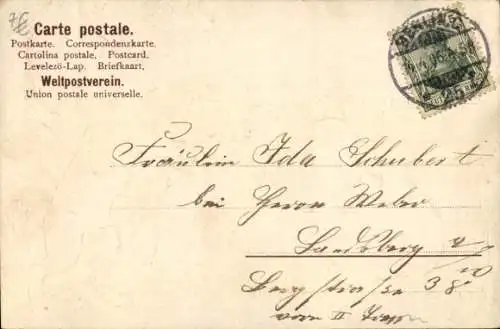 Carte postale.
Postkarte. Correspondenzkarte.
Cartolina postale. Postcard.
Levelező-Lap. Briefkaart.
Weltpostverein.
Union postale universelle.
Fräulein Ida Schubert
bei Herrn Weber
Landsberg
Bergstraße 38
vorn II